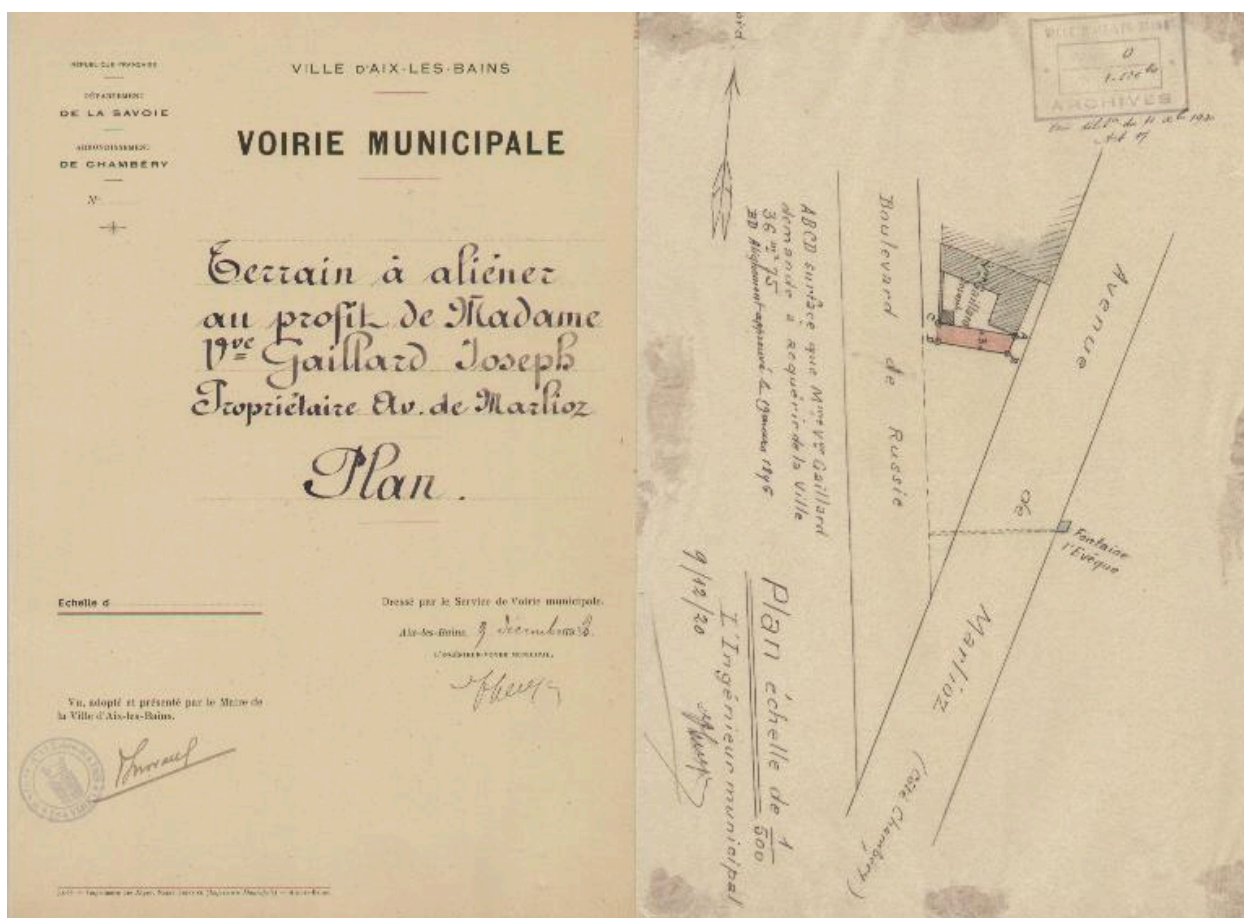 RÉPUBLIQUE FRANÇAISE
DÉPARTEMENT
DE LA SAVOIE
ARRONDISSEMENT
DE CHAMBÉRY
N°
VILLE D'AIX-LES-BAINS
VOIRIE MUNICIPALE
Terrain à aliéner
au profit de Madame
Vve Gaillard Joseph
Propriétaire Av. de Marlioz
Plan.
Echelle d
Dressé par le Service de Voirie municipale.
Aix-les-Bains, 9 décembre
L'INGÉNIEUR-VOYER MUNICIPAL,
Vu, adopté et présenté par le Maire de
la Ville d'Aix-les-Bains.
ARCHIVES
ABCD surface que Mme Vve Gaillard
demande à acquérir de la Ville
36 m² 75
BD Alignement approuvé le 19 mars 1896
Boulevard de Russie
Avenue de Marlioz
(Côté Chambéry)
Fontaine
l'Evêque
Vve Gaillard
A
B
C
D
Plan échelle de 1/500
L'Ingénieur municipal
9/12/20